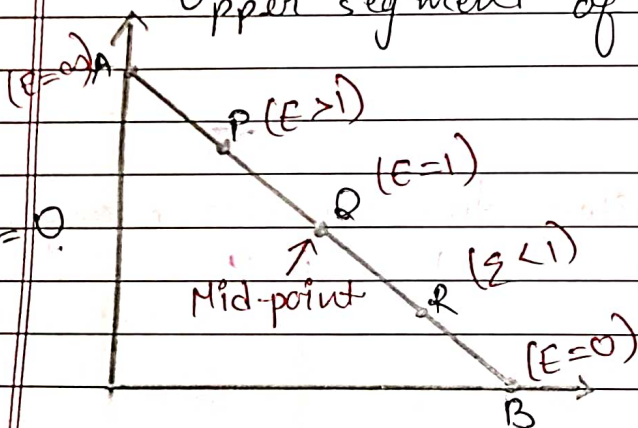 Upper segment of
(E=∞)A
P (E>1)
(E=1)
Q
=0.
(ε<1)
Mid-point
R
(E=0)
B